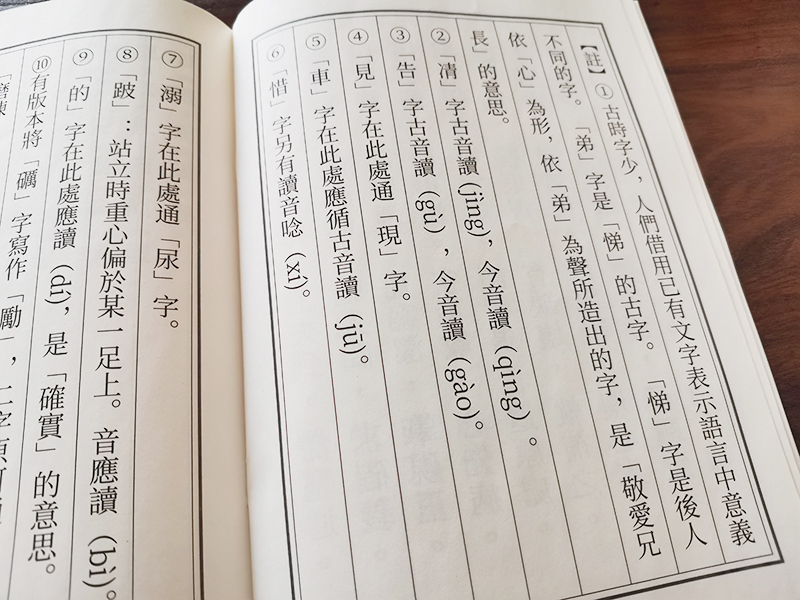 【註】①古時字少，人們借用已有文字表示語言中意義
不同的字。「弟」字是「悌」的古字。「悌」字是後人
依「心」為形，依「弟」為聲所造出的字，是「敬愛兄
長」的意思。
②「凊」字古音讀(jìng)，今音讀(qìng)。
③「告」字古音讀(gù)，今音讀(gào)。
④「見」字在此處通「現」字。
⑤「車」字在此處應循古音讀(jū)。
⑥「惜」字另有讀音唸(xí)。
⑦「溺」字在此處通「尿」字。
⑧「跛」：站立時重心偏於某一足上。音應讀(bì)。
⑨「的」字在此處應讀(dí)，是「確實」的意思。
⑩有版本將「礪」字寫作「勵」，二字原可通
「磨煉